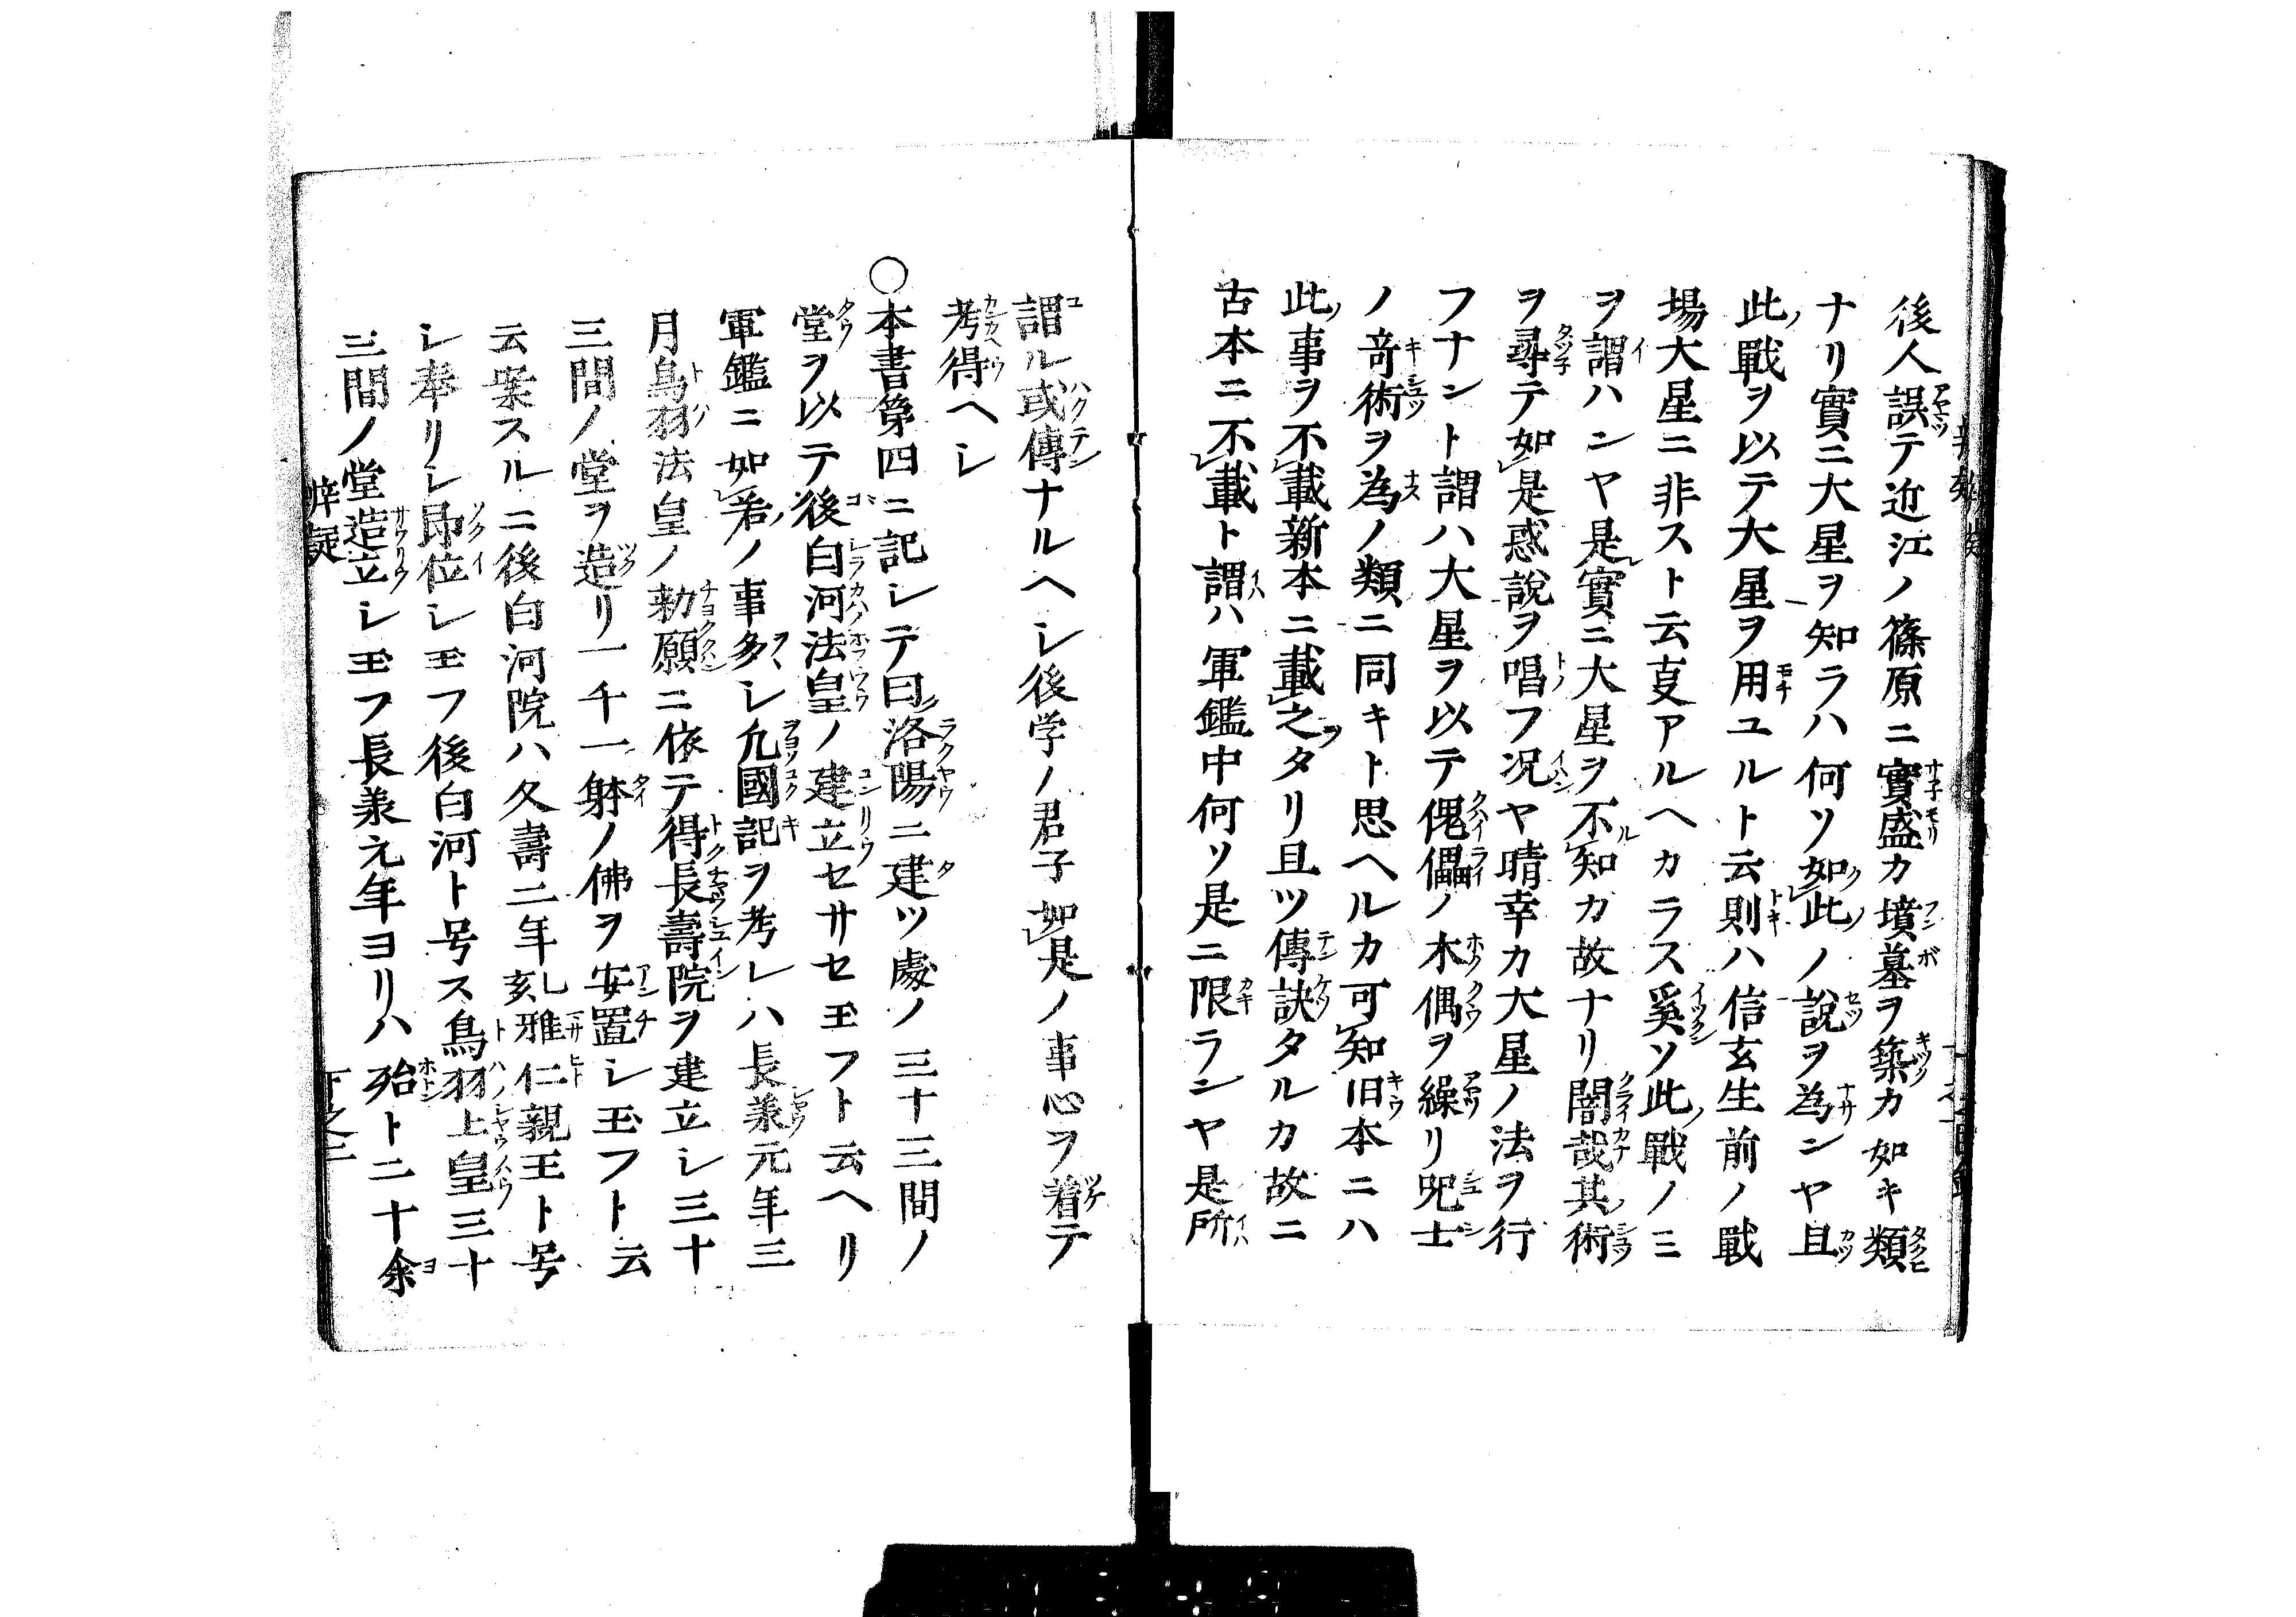 後人誤テ近江ノ篠原ニ實盛カ墳墓ヲ築カ如キ類
ナリ實ニ大星ヲ知ラハ何ソ如此ノ説ヲ為ンヤ且
此戰ヲ以テ大星ヲ用ユルト云則ハ信玄生前ノ戰
場大星ニ非スト云叓アルヘカラス奚ソ此戰ノミ
ヲ謂ハンヤ是實ニ大星ヲ不知カ故ナリ闇哉其術
ヲ尋テ如是惑説ヲ唱フ况ヤ晴幸カ大星ノ法ヲ行
フナント謂ハ大星ヲ以テ傀儡ノ木偶ヲ繰リ咒士
ノ竒術ヲ為ノ類ニ同キト思ヘルカ可知旧本ニハ
此事ヲ不載新本ニ載之タリ且ツ傳訣タルカ故ニ
古本ニ不載ト謂ハ軍鑑中何ソ是ニ限ランヤ是所
謂ル或傳ナルヘシ後学ノ君子如是ノ事心ヲ着テ
考得ヘシ
○本書第四ニ記シテ曰洛陽ニ建ツ處ノ三十三間ノ
堂ヲ以テ後白河法皇ノ建立セサセ玉フト云ヘリ
軍鑑ニ如若ノ事多シ九國記ヲ考レハ長兼元年三
月鳥羽法皇ノ勅願ニ依テ得長壽院ヲ建立シ三十
三間ノ堂ヲ造リ一千一躰ノ佛ヲ安置シ玉フト云
云案スルニ後白河院ハ久壽二年亥雅仁親王ト号
シ奉リシ昂位シ玉フ後白河ト号ス鳥羽上皇三十
三間ノ堂造立シ玉フ長兼元年ヨリハ殆ト二十余